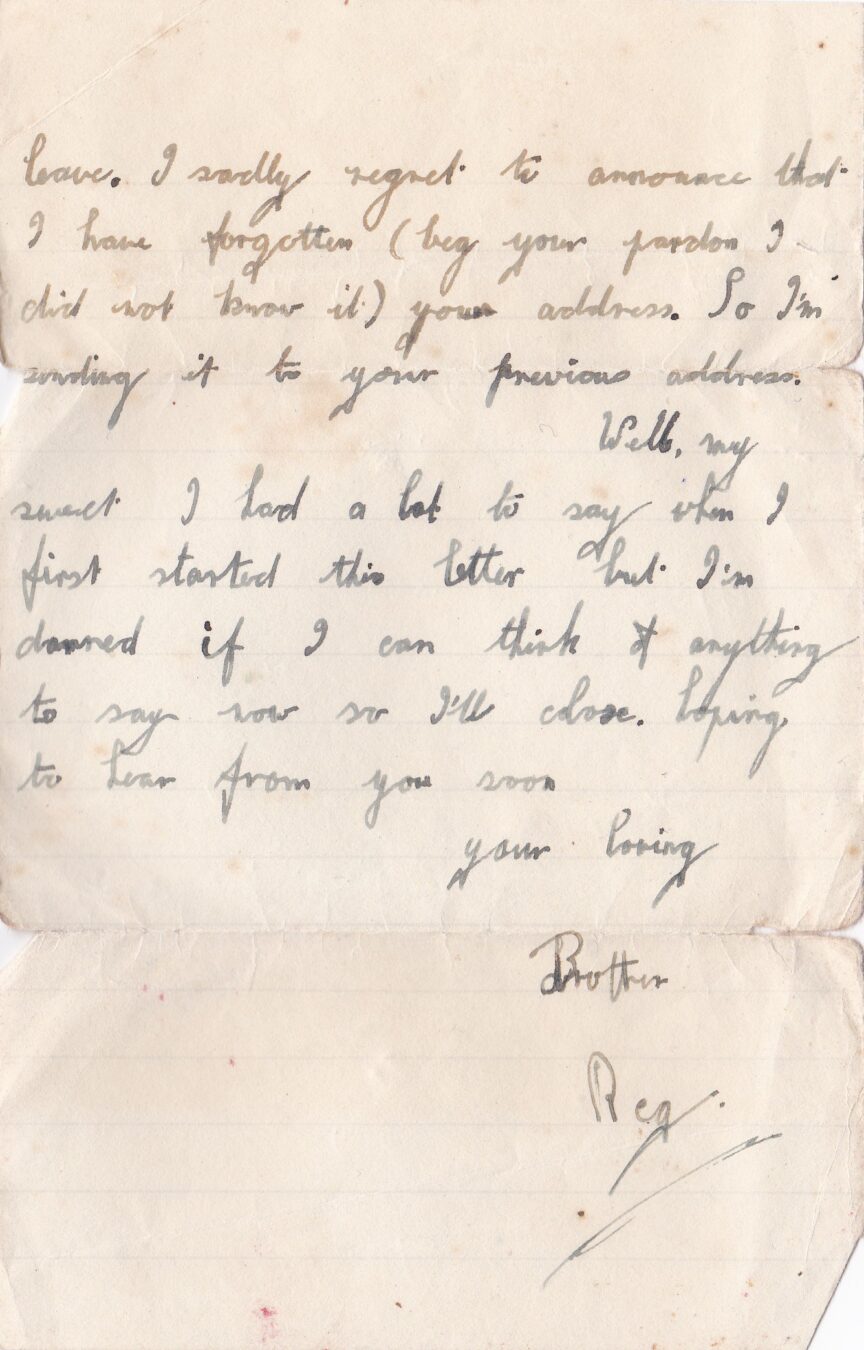 leave. I sadly regret to announce that
I have forgotten (beg your pardon I
did not know it) your address. So I'm
sending it to your previous address.
Well, my
sweet I had a lot to say when I
first started this letter but I'm
darned if I can think of anything
to say now so I'll close. hoping
to hear from you soon
your loving
Brother
Reg.